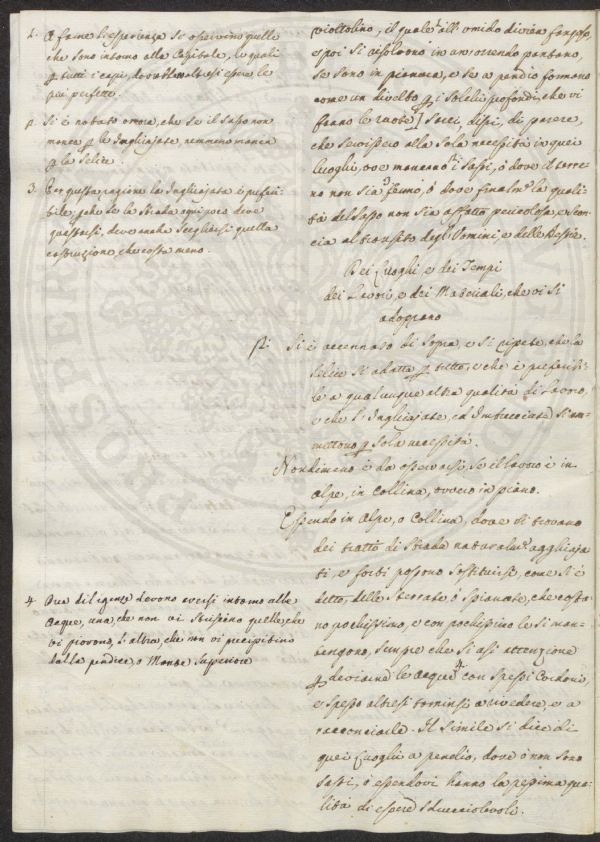 2. A farne l'esperienza si osservino quelle
che sono intorno alla Capitale, le quali
p tutti i capi, dovrebbero essere le
più perfette.
p. Si è notato ancora, che se il sasso non
manca p le Inghiajate, nemmeno manca
p la selice.
3. Per questa ragione la Inghiajata è preferi-
bile, poiche se la Strada ogni poco deve
guastarsi, deve anche scegliersi quella
costruzione che costa meno.
4. Due diligenze devono aversi intorno alle
Acque, una, che non vi stiano quelle, che
vi piovono, l'altra, che non vi precipitino
dalla pendice, o Monte superiore
viottolino, il quale all'umido divien fangoso,
e poi si risolvono in un orrendo pantano,
se sono in pianura, e se a pendio formano
come un divelto p i solchi profondi, che vi
fanno le ruote. Direi, dissi, di parere,
che servissero alla sola necessità in quei
luoghi, ove mancano i sassi, o dove il terre-
no non sia fermo, o dove finalm.e la quali-
tà del Sasso non sia affatto pericolosa, e scon-
cia al transito degl'Uomini, e delle Bestie.
Dei Luoghi, e dei Tempi
dei Lavori, e dei Materiali, che vi si
adoprano
p. Si è accennato di sopra, e si ripete, che la
Selice si adatta p tutto, e che è preferibi-
le a qualunque altra qualità di Lavoro,
e che l'Inghiajate, ed Imbrecciate si am-
mettono p sola necessità.
Nondimeno è da osservarsi, se il lavoro è in
alpe, in collina, ovvero in piano.
Essendo in Alpe, o Collina, dove si trovano
dei tratti di Strada naturalm.e agghiaja-
ti, e forti possono sostituirsi, come si è
detto, delle Sterrate, o Spianate, che costa-
no pochissimo, e con pochissimo le si man-
tengono, sempre che si usi attenzione
p deviarne le acque con spessi Cordoni,
e spesso altresì tornarsi a rivedere, e a
racconciarle. Il simile si dice di
quei Luoghi a pendio, dove o non sono
sassi, o essendovi hanno la pessima qua-
lità di essere sdrucciolevoli.